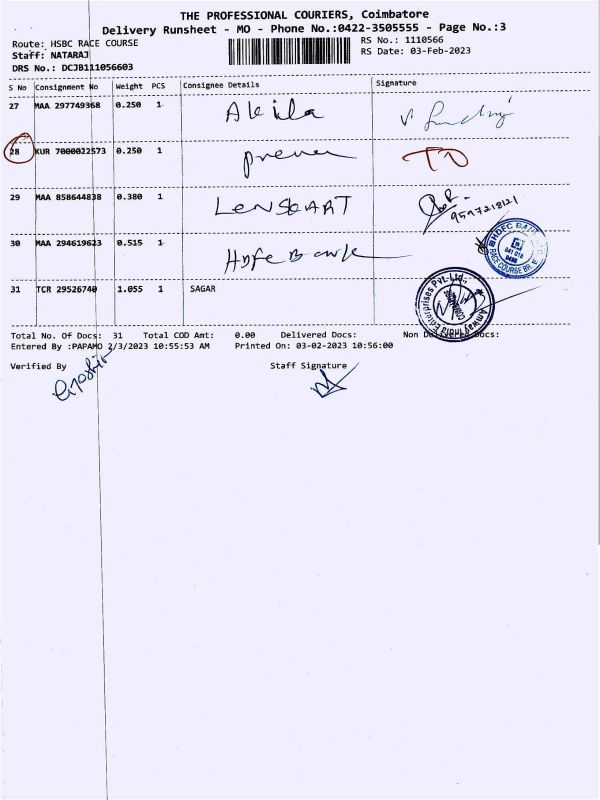 THE PROFESSIONAL COURIERS, Coimbatore
Delivery Runsheet - MO - Phone No.:0422-3505555 - Page No.:3
Route: HSBC RACE COURSE
RS No.: 1110566
Staff: NATARAJ
RS Date: 03-Feb-2023
DRS No.: DCJB111056603
S No Consignment No Weight PCS Consignee Details Signature
27 MAA 297749368 0.250 1 Akila
28 KUR 7000022573 0.250 1
29 MAA 858644838 0.380 1 LENSKART 9597218121
30 MAA 294619623 0.515 1 Hdfc Bank
HDFC BANK
RACE COURSE BR
31 TCR 29526740 1.055 1 SAGAR
Amway India Enterprises Pvt. Ltd.,
Total No. Of Docs: 31 Total COD Amt: 0.00 Delivered Docs: Non Docs:
Entered By :PAPAMO 2/3/2023 10:55:53 AM Printed On: 03-02-2023 10:56:00
Verified By Staff Signature